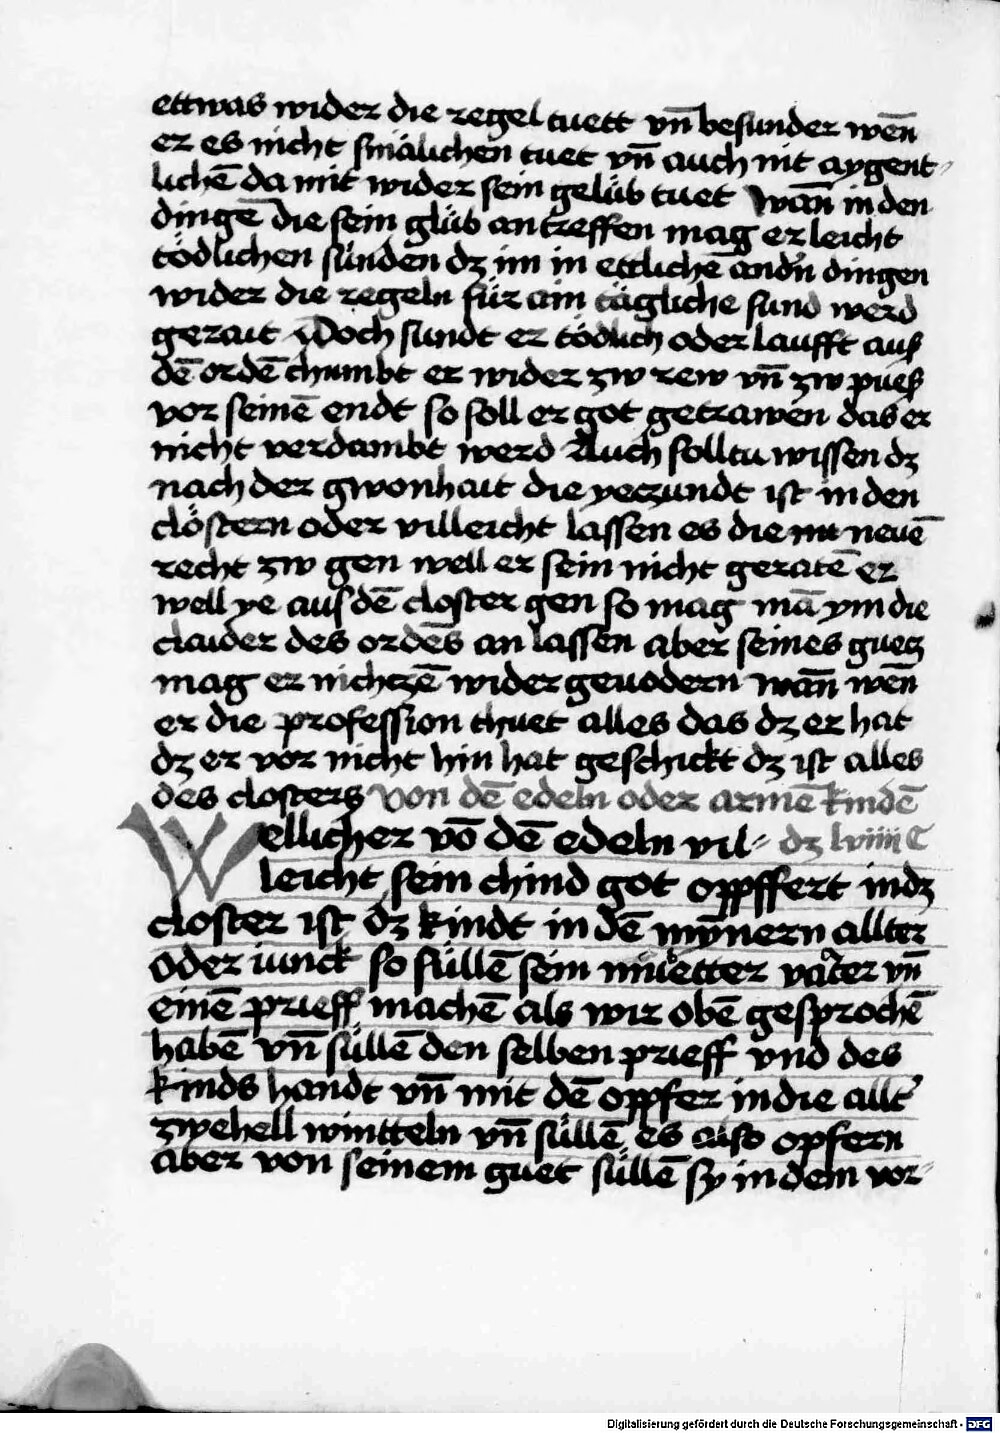 ettwas wider die regel tuett vn̄ besunder wēn
er es nicht smälichen tuet vn̄ auch nit aygent⸗
lichē da mit wider sein gelüb tuet wān in den
dingē die sein glüb antreffen mag er leicht
tödlichen sünden dz im in ettlichē andn̄ dingen
wider die regeln für ain tägliche sund werd
gerait Doch sundt er tödlich oder laufft aus
dē ordē chumbt er wider zw rew vn̄ zw pueß
vor seinē endt so soll er got getrawen das er
nicht verdambt werd Auch solltu wissen dz
nach der gwonhait die yeczundt ist in den
clöstern oder villeicht lassen es die nu neuē
recht zw gen well er sein nicht geratē er
well ye aus dē closter gen so mag mā ym die
claider des ordēs an lassen aber seines guecz
mag er nichczē wider gevodern wān wēn
er die profession thuet alles das dz er hat
dz er vor nicht hin hat geschickt dz ist alles
des closters von dē edeln oder armē kindē
Wellicher vō dē edeln vil⸗ dz lviiii C
leicht sein chind got oppffert in dz
closter ist dz kindt in dē mynern allter
oder iunck so süllē sein mueter vater vn̄
einē prieff machē als wir obē gesprochē
habē vn̄ süllē den selben prieff vnd des
kinds handt vn̄ mit dē oppfer in die allt
zwehell wintteln vn̄ süllē es also opfern
aber von seinem guet süllē sy in dem vor⸗
Digitalisierung gefördert durch die Deutsche Forschungsgemeinschaft - DFG